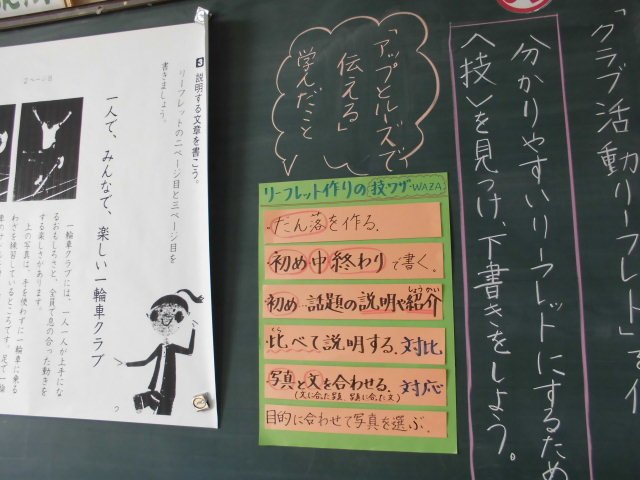 「クラブ活動リーフレット」を作
分かりやすいリーフレットにするため
〈技〉を見つけ、下書きをしよう。
「アップとルーズで
伝える」
学んだこと
リーフレット作りの技ワザWAZA
・だん落を作る。
初め中終わりで書く。
しょうかい
初め…話題の説明や紹介
くら
比べて説明する。対比
写真と文を合わせる。対応
(文に合った写真、写真に合った文)
目的に合わせて写真を選ぶ。
3 説明する文章を書こう。
リーフレットの二ページ目と三ページ目を
書きましょう。
2ページ目
一人で、みんなで、楽しい一輪車クラブ
一輪車クラブには、一人一人が上手にな
るおもしろさと、全員で息の合った動きを
する楽しさがあります。
上の写真は、手を使わずに一輪車に乗る
わざを練習しているところです。足で一輪